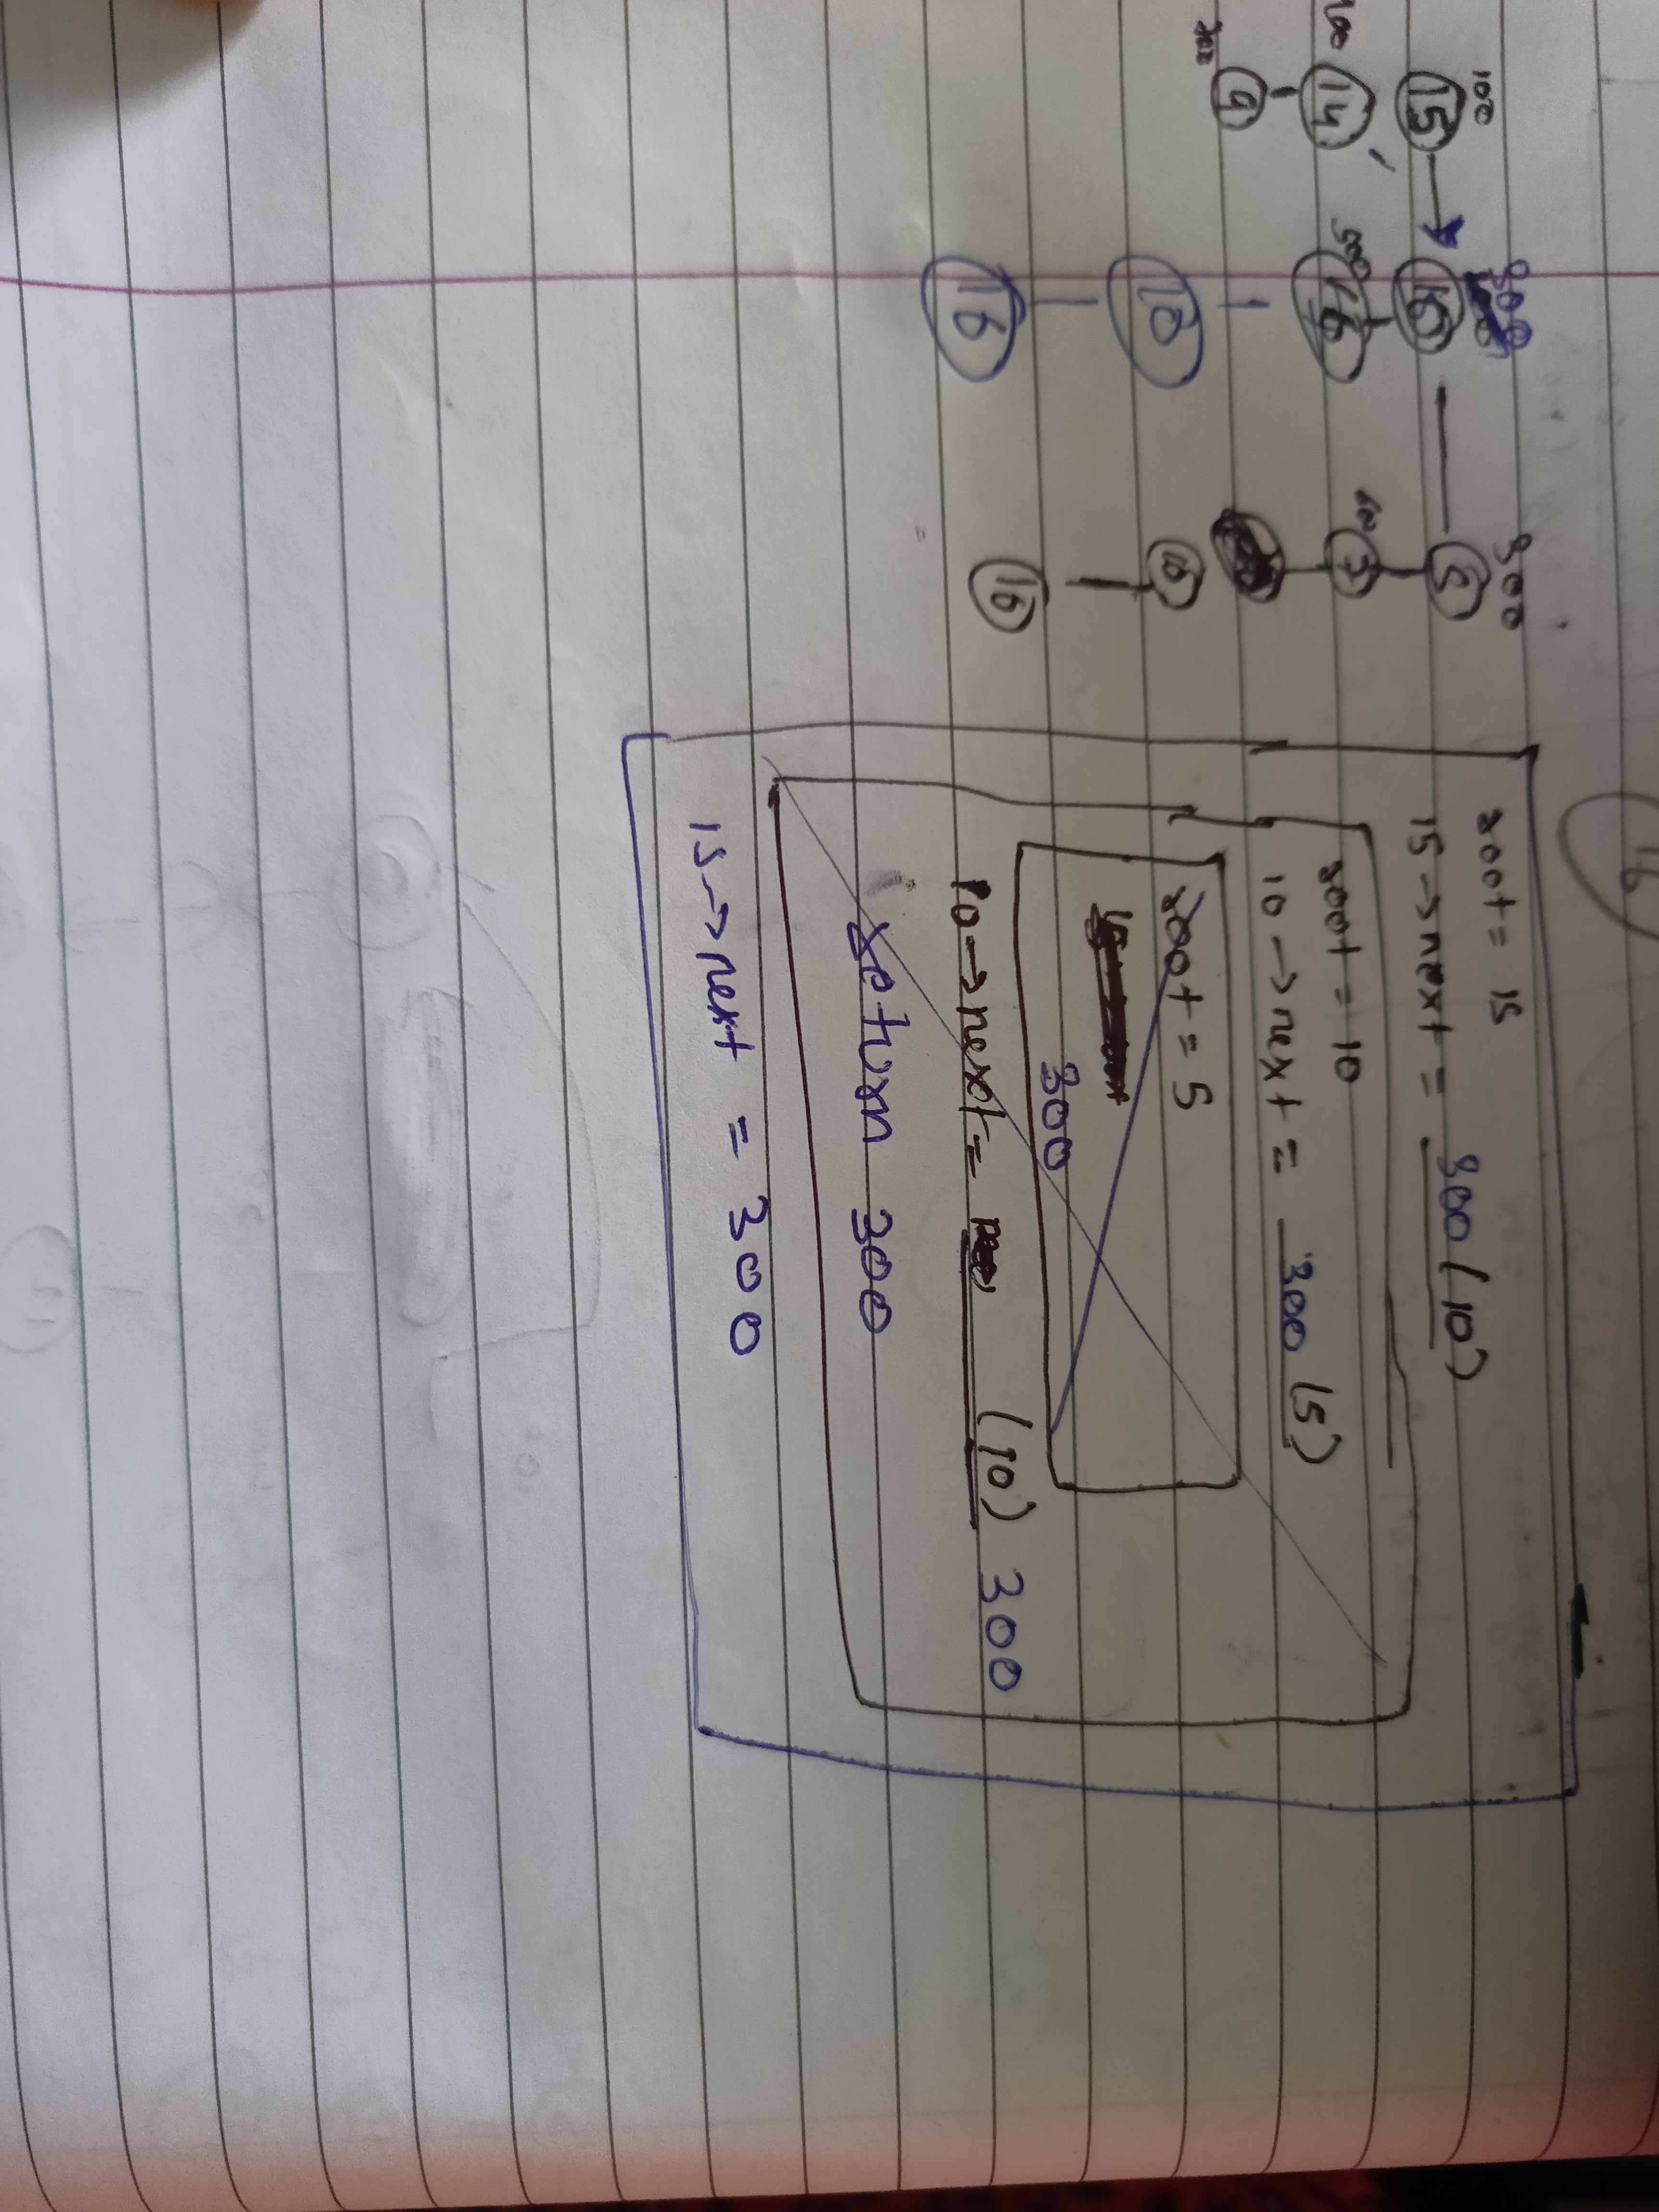 16
100 300 300
15 10 5
500
14 16 7
9
10 10
16 16
root = 15
15->next = 300 (10)
root = 10
10->next = 300 (5)
root = 5
300
10->next = (10) 300
return 300
15->next = 300